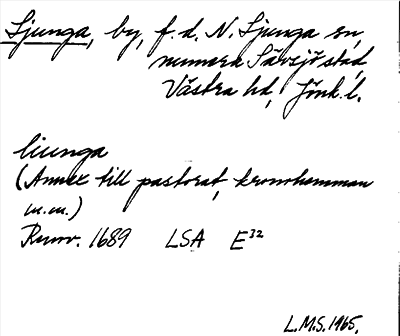 Ljunga, by, f.d. N. Ljunga sn,
numera Sävsjö stad,
Västra hd, Jönk. l.
liunga
(Annex till pastorat, kronohemman
m.m.)
Rmnr. 1689 LSA E32
L.M.S. 1965.